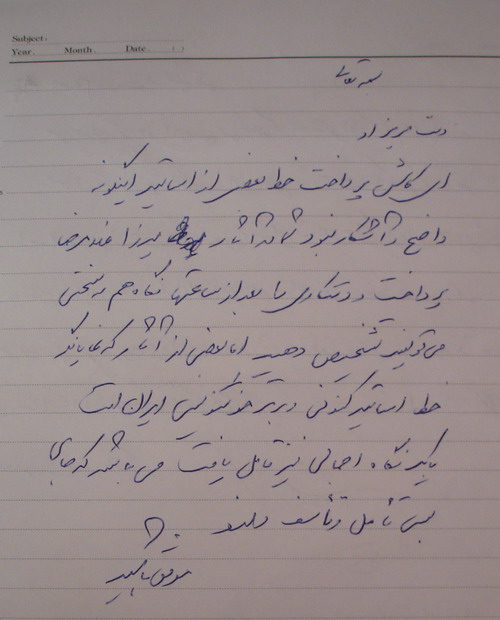 Subject.
Year. Month. Date. ( )
بسمه تعالی
دست مریزاد
ای کاش پرداخت خط بعضی از اساتید اینگونه
واضح و آشکار نبود شما در آثار میرزا غلامرضا
پرداخت و دستکاری را بعد از ساعتها نگاه هم به سختی
می‌توانید تشخیص دهید اما بعضی از آثار که نمایانگر
خط اساتید کنونی و برتر خوشنویسی ایران است
با یک نگاه اجمالی نیز قابل یافت می باشد که جای
بسی تأمل و تأسف دارد
موفق باشید